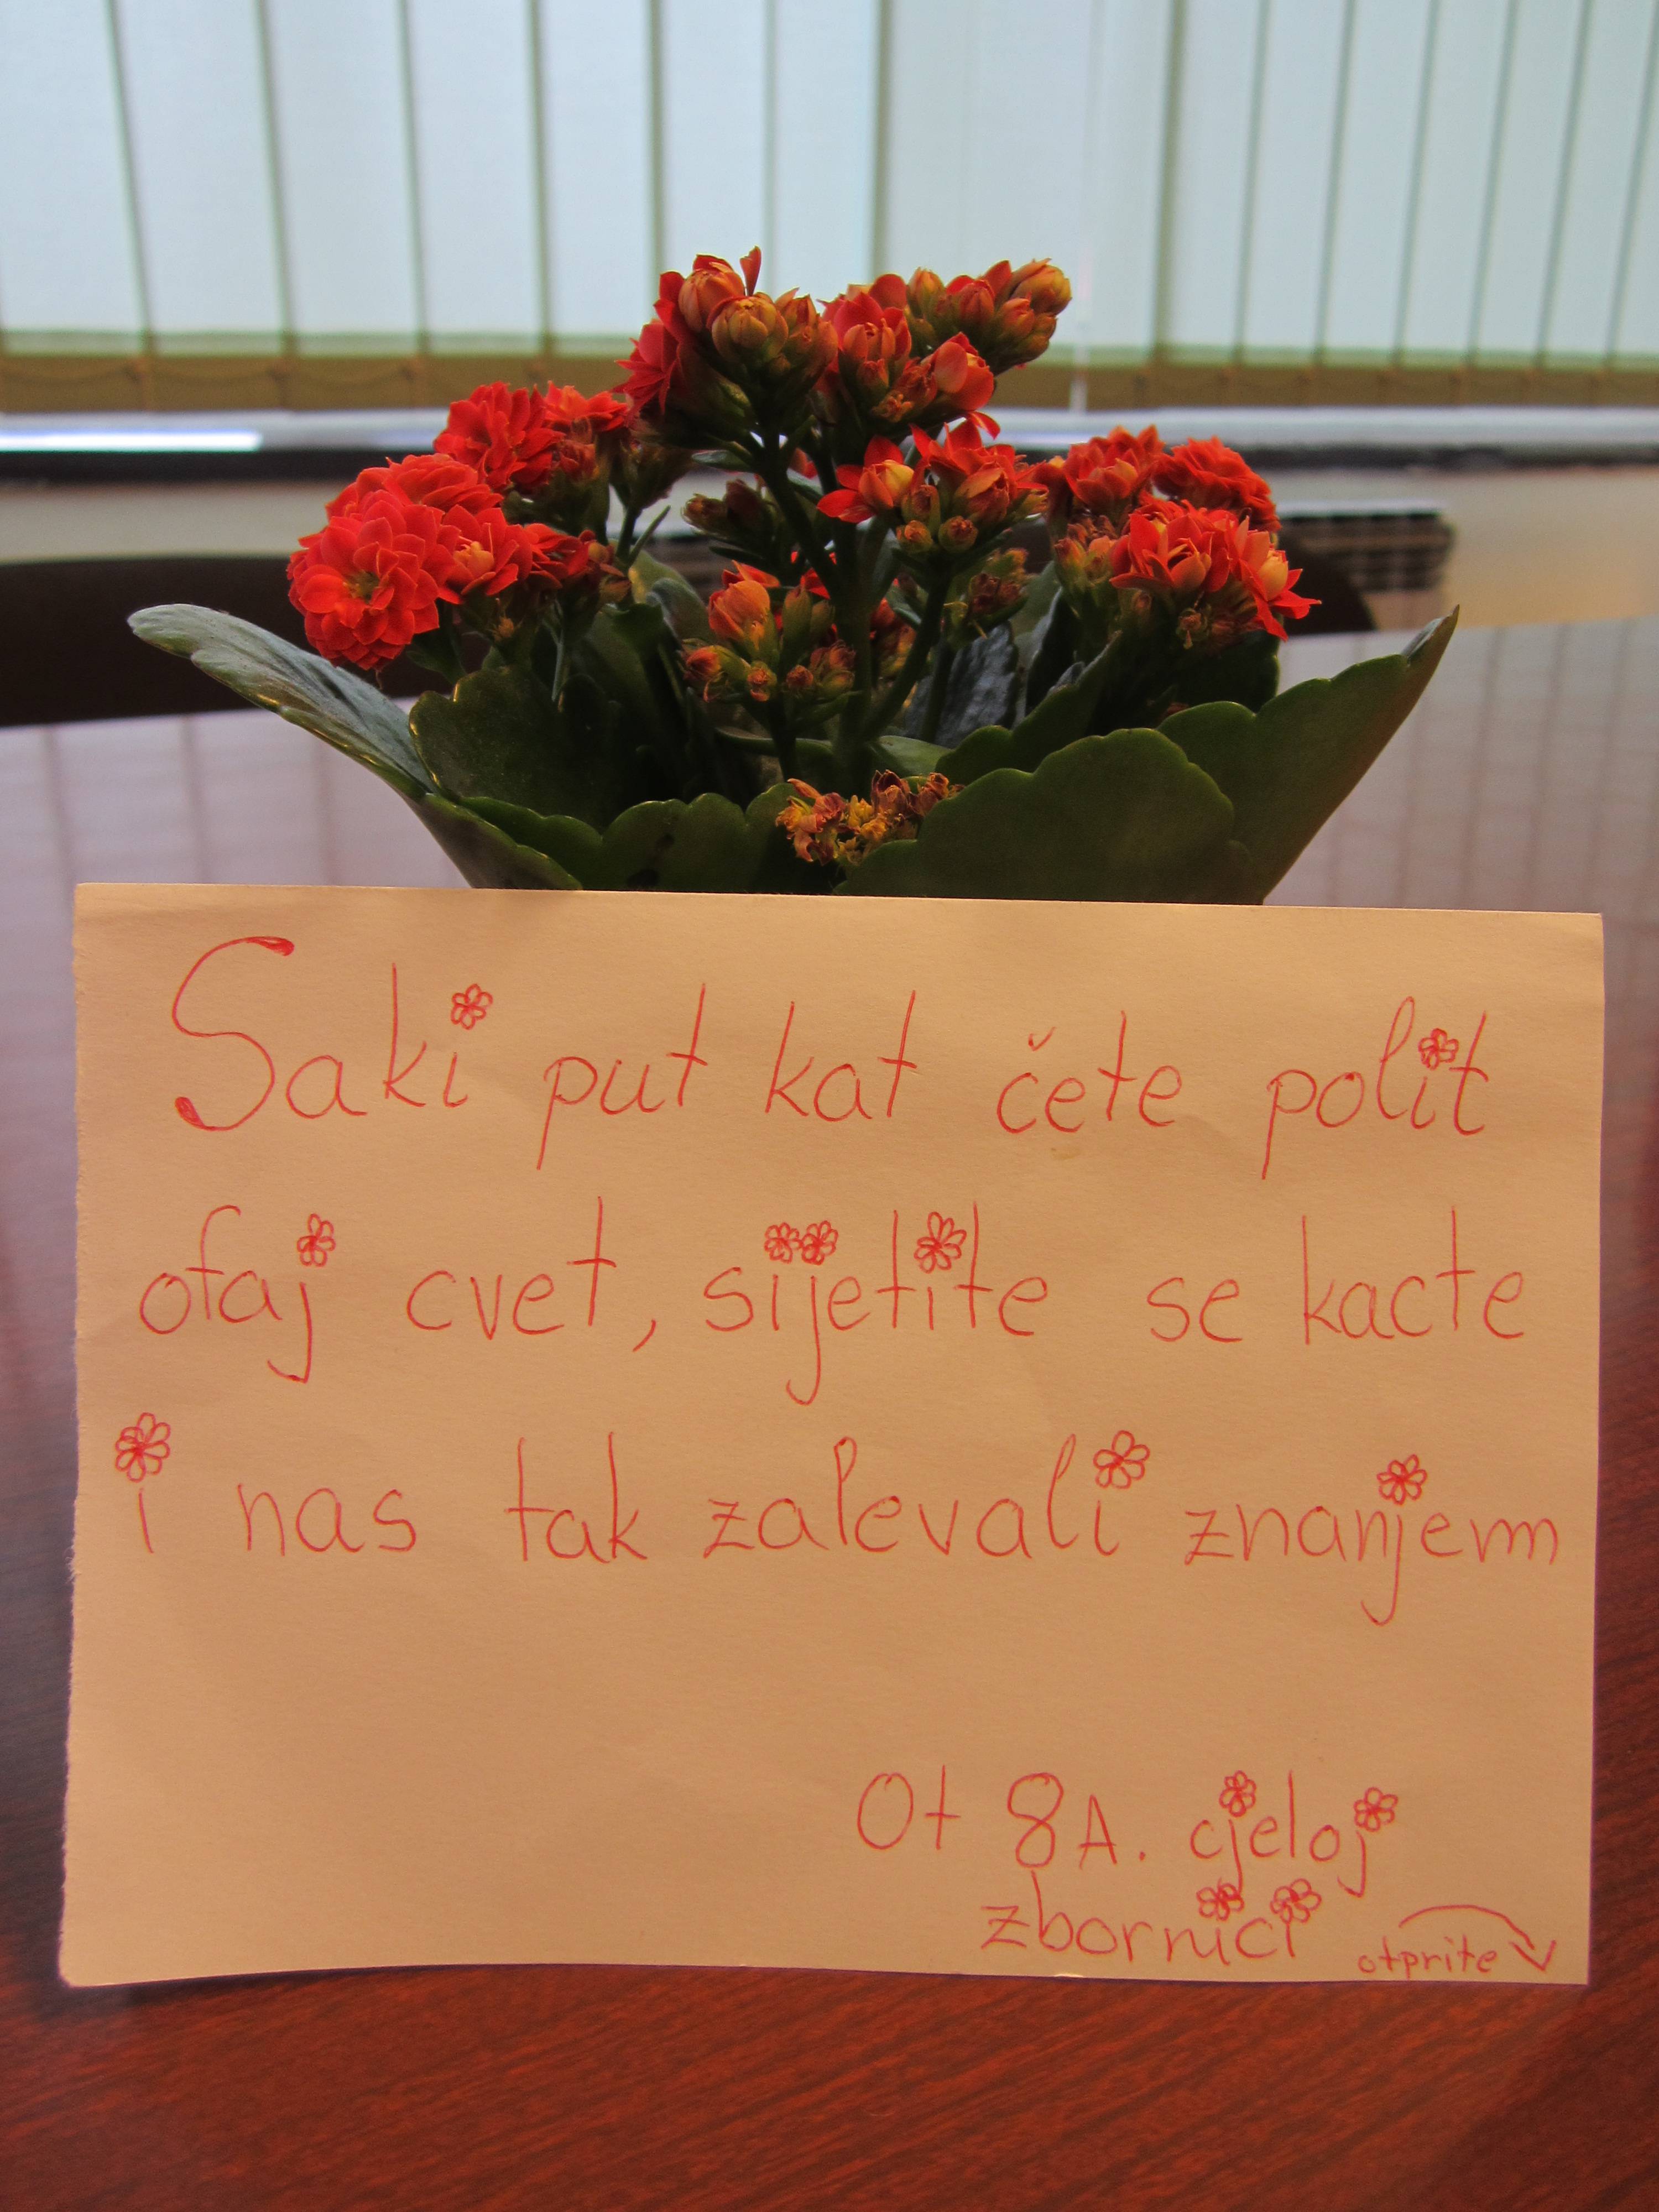 Saki put kat čete polit
ofaj cvet, sijetite se kacte
i nas tak zalevali znanjem
Ot 8A. cjeloj
zbornici
otprite